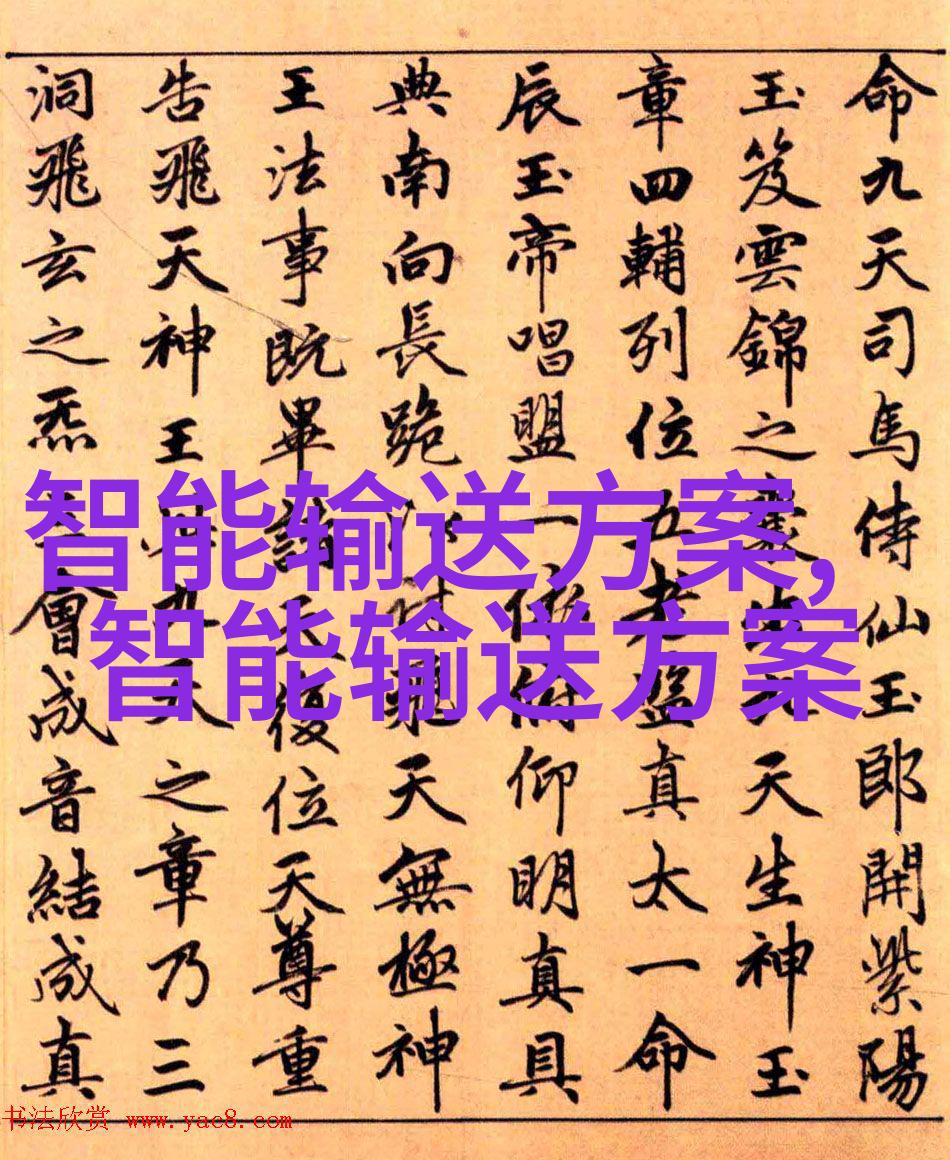 命九天司馬侍仙玉郎開紫陽
玉笈雲錦之天生神玉
章四輔列位五老監真太一命
辰玉帝唱盟一依俯仰明真具
典南向長跪天無極神
王法事既畢諸天復位天尊重
告飛天神王九天之章乃三
洞飛玄之炁會成音結成真
智能输送方案,
智能输送方案
书法欣赏 www.yac8.com